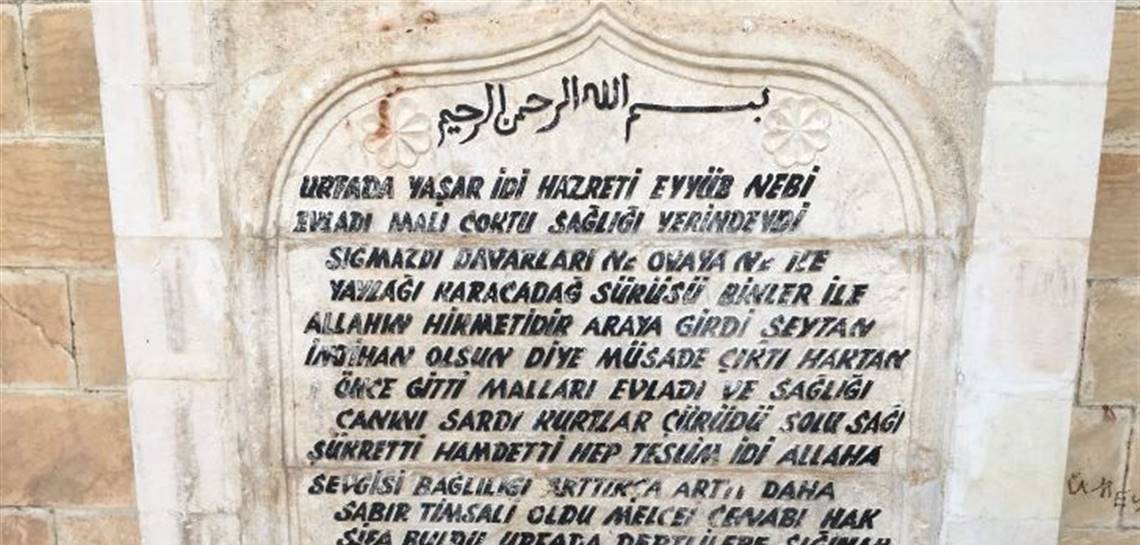 بسم الله الرحمن الرحيم
URFADA YAŞAR İDİ HAZRETİ EYYÜB NEBİ
EVLADI MALI ÇOKTU SAĞLIĞI YERİNDEYDİ
SIĞMAZDI DAVARLARI NE OVAYA NE
YAYLAĞI KARACADAĞ SÜRÜSÜ BİNLER İLE
ALLAHIN HİKMETİDİR ARAYA GİRDİ ŞEYTAN
İMTİHAN OLSUN DİYE MÜSADE ÇIKTI HAKTAN
ÖNCE GİTTİ MALLARI EVLADI VE SAĞLIĞI
CANINI SARDI KURTLAR ÇÜRÜDÜ SOLU SAĞI
ŞÜKRETTİ HAMDETTİ HEP TESLİM İDİ ALLAHA
SEVGİSİ BAĞLILIĞI ARTTIKÇA ARTTI DAHA
SABIR TİMSALİ OLDU MELCEİ CENABI HAK
ŞİFA BULDU URFADA DERTLİLERE